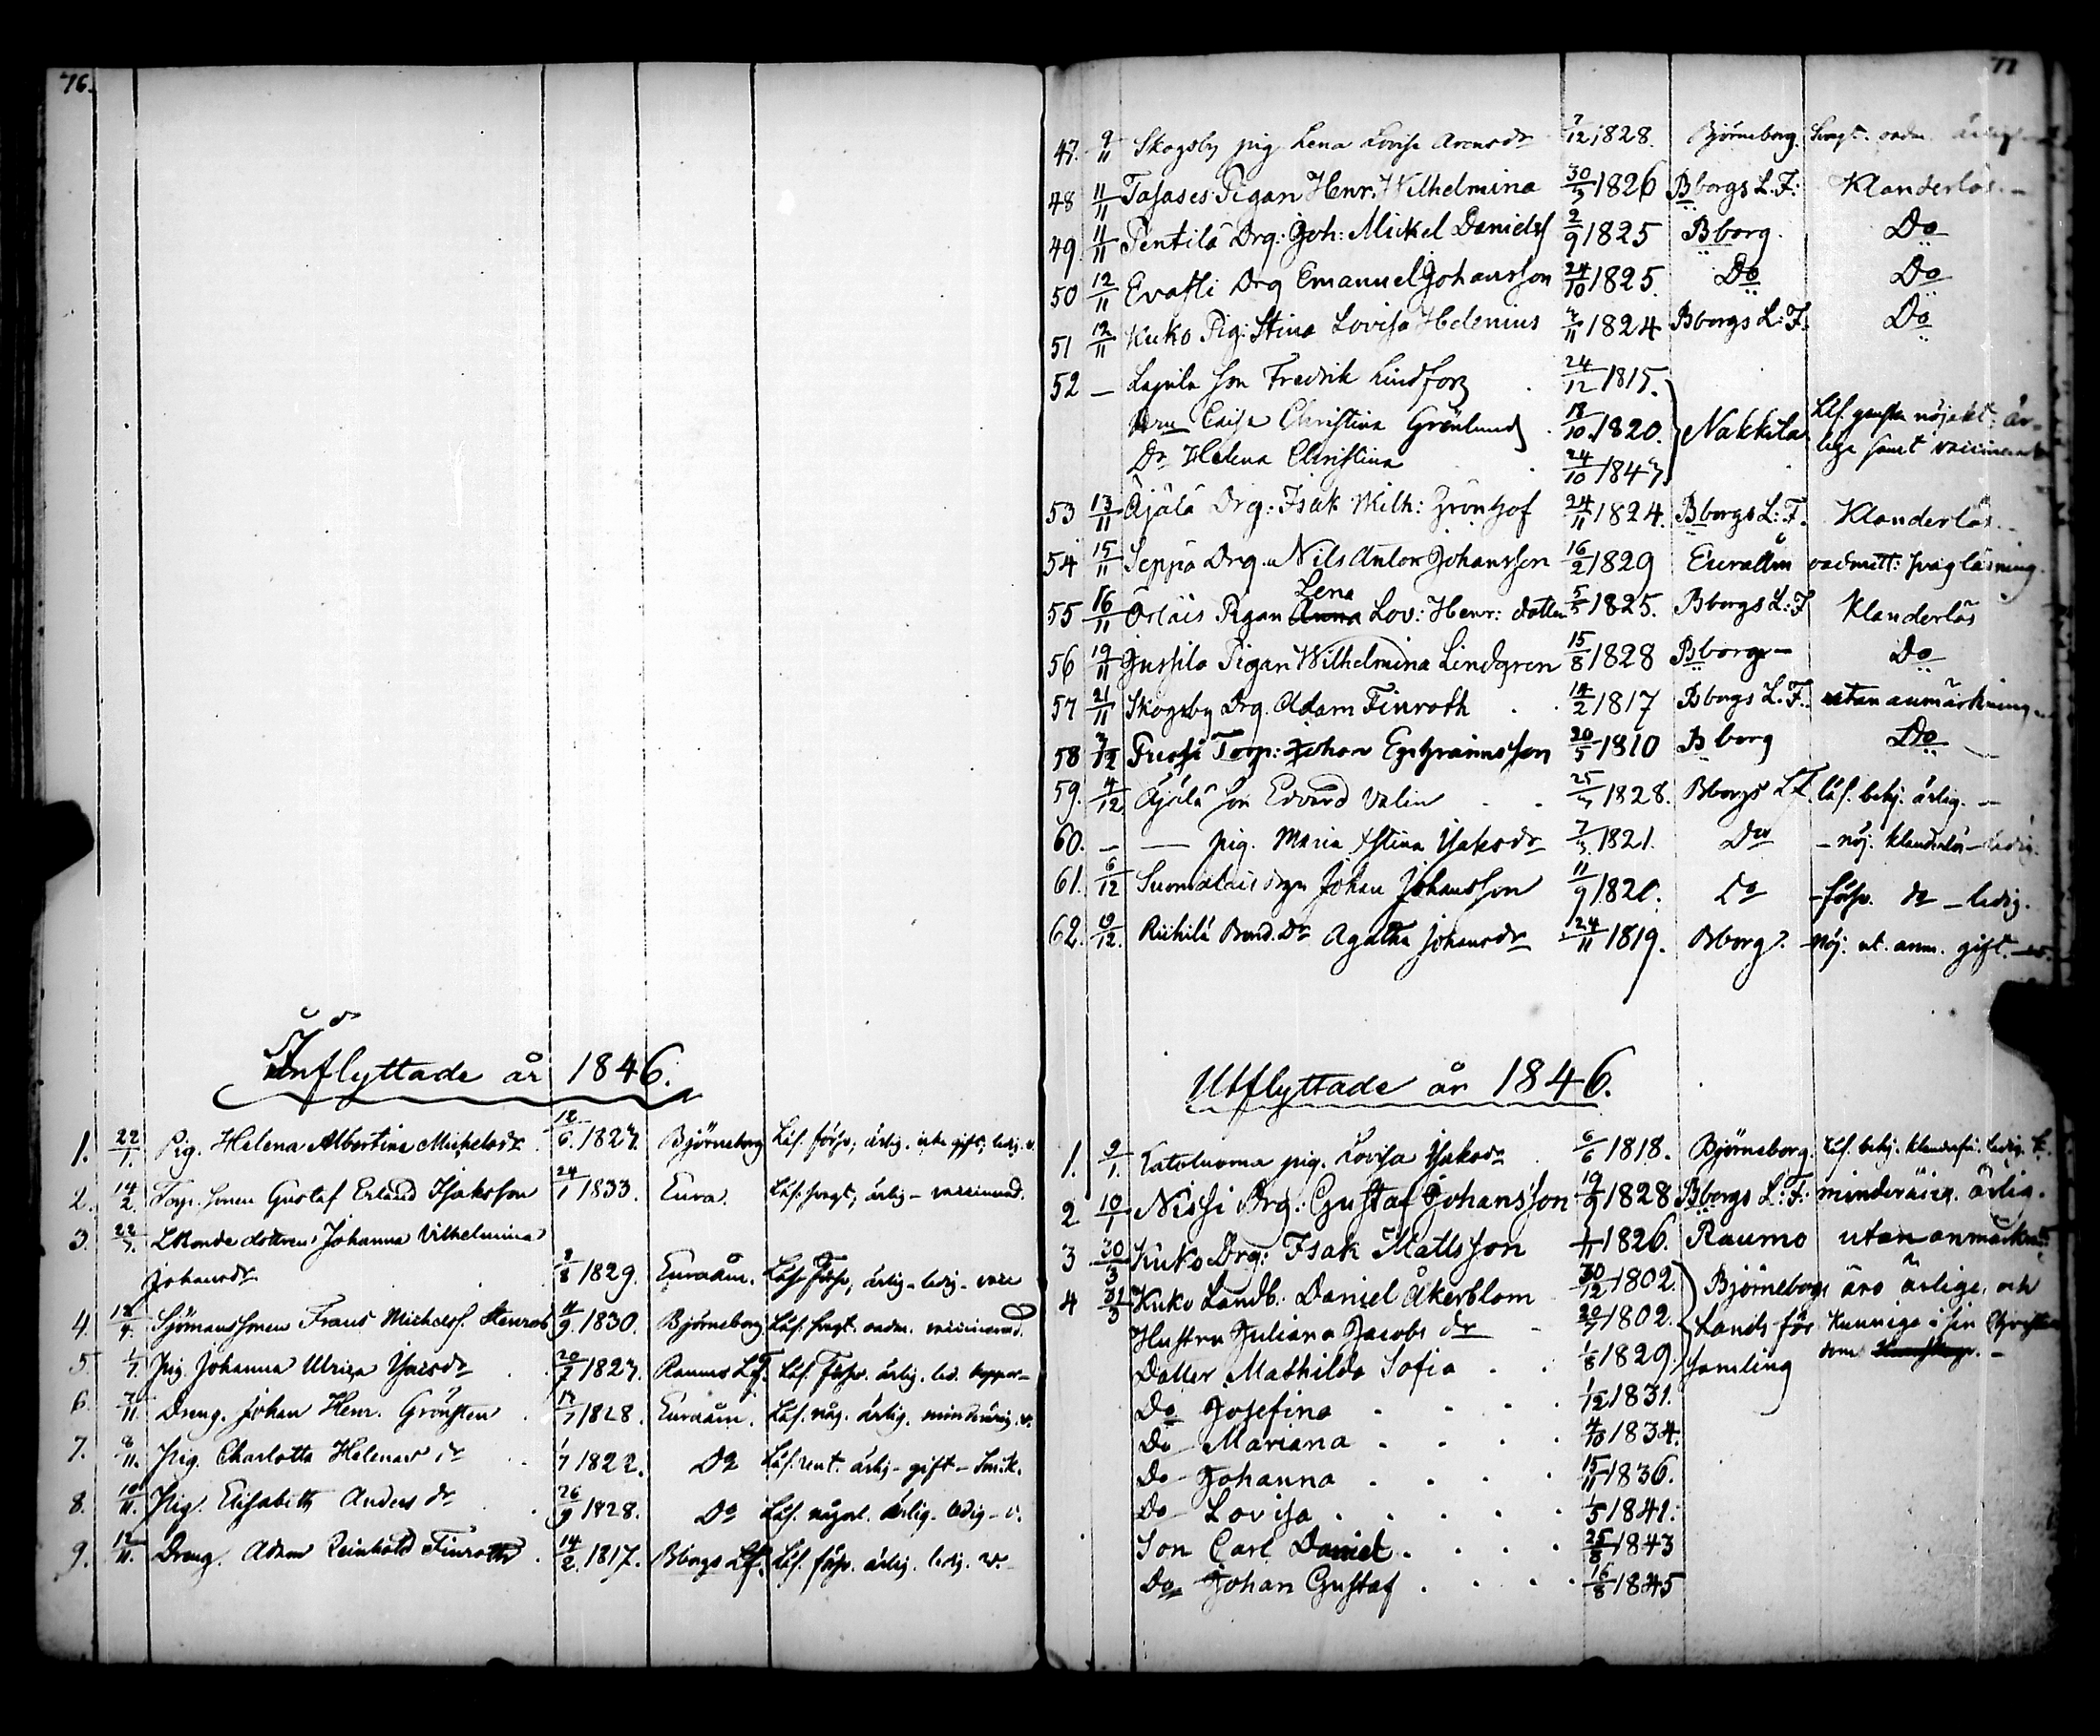 76.
Inflyttade år 1846.
1. 22/1. Pig. Helena Albertina Michelsdr 12/6. 1827. Björneborg Läs. försv; ärlig. icke gift; ledig. v.
2. 14/2. Torp. sonen Gustaf Erland Isaksson 24/1 1833. Eura. Läs. svagt; ärlig - vaccinerad.
3. 22/3. dottren Johanna Vilhelmina
Johansdr 8/8 1829. Euraåm. Läs. Försv, ärlig - ledig - vacc
4. 12/4. Sjömanssonen Frans Michelss. Henros 4/9 1830. Björneborg Läs. svagt. oadm. vaccinerad.
5. 1/7. Pig. Johanna Ulrica Isacsdr 20/7 1827. Raumo L.F. Läs. Försv. ärlig. led. koppor-
6. 7/11. Dreng. Johan Henr. Grönsten 17/7 1828. Euraåm. Läs. någ. ärlig. minderårig. v.
7. 8/11. Pig. Charlotta Helenas dr 1/7 1822. Do Läs. rent. ärlig - gift -
8. 10/11. Pig. Elisabeth Anders dr 26/9 1828. Do Läs. någorl. ärlig. ledig - v.
9. 12/11. Dreng. Adam Reinhold Finroth 14/2. 1817. Bborgs L.f. Läs. försv. ärlig. ledig. v.
77
47. 9/11 Skogsby pig Lena Lovisa Arensdr 7/12 1828. Björneborg. Svagt. oadm. ärlig
48 11/11 Tasases Pigan Henr. Wilhelmina 30/3 1826 Bborgs L.F: Klanderlös.
49 11/11 Pentilä Drg: Joh: Mickel Daniels 2/9 1825 Bborg. Do
50 12/11 Evasti Drg Emanuel Johansson 24/10 1825. Do Do
51 12/11 Kuko Pig: Stina Lovisa Helenius 7/11 1824 Bborgs L:F. Do
52 — son Fredrik Lindfors 24/12 1815.
Hru Caisa Christina Grönlund 18/10. 1820. Nakkila Läs. ganska nöjakt: är-
Dr Helena Christina 24/10 1843 lige samt vaccinerade
53 13/11 Äjälä Drg: Isak Wilh: Grönhof 24/11 1824. Bborgs L:F. Klanderlös.
54 15/11 Seppä Drg. Nils Anton Johansson 16/2 1829 Euraåm oadmitt: svag läsning.
Lena
55 16/11 Örläis Pigan Anna Lov: Henr: dotter 5/5 1825. Bborgs L:F Klanderlös
56 19/11 Jussila Pigan Wilhelmina Lindgren 15/8 1828 Bborg — Do
57 21/11 Skogsby Drg. Adam Finroth 14/2 1817 Bborgs L.F. utan anmärkning
58 3/12 Torp: Johan Ephraimsson 20/5 1810 Bborg Do
59. 4/12 Äjälä son Edvard Valin 25/7 1828. Bborgs L.F. läs. behj. ärlig. —
60. — — pig. Maria Stina Isaksdr 7/3 1821. Do - nöj. klanderlös - ledig.
61. 6/12 Suomalais drgn Johan Johansson 11/9 1820. Do - försv. do - ledig.
62. 9/12. Riihilä Bond. Dr Agatha Johansdr 24/11 1819. Bborg. nöj: ut. anm. gift. —
Utflyttade år 1846.
1. 9/1. pig. Lovisa Isaksdr 6/6 1818. Björneborg. Läs. behj. klanderfri. ledig.
2 10/1 Nissi Drg: Gustaf Johansson 19/9 1828 Bborgs L:F: minderårig. ärlig.
3 30/3 Kuko Drg: Isak Mattsson 1/11 1826. Raumo utan anmärkn:
4 31/3 Kuko Landb: Daniel Åkerblom 30/12 1802. Björneborgs äro ärlige, och
Hustru Juliana Jacobs dr 20/7 1802. Lands för kunniga i sin Christen
Dotter Mathilda Sofia 1/8 1829. samling dom
Do Josefina 1/12 1831.
Do Mariana 4/10 1834.
Do Johanna 15/11 1836.
Do Lovisa 1/5 1841.
Son Carl Daniel 25/8 1843
Do Johan Gustaf 16/8 1845